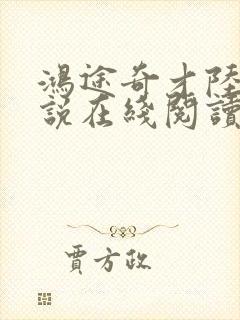 鴻途奇才陸
說在綫閱讀
賈方政